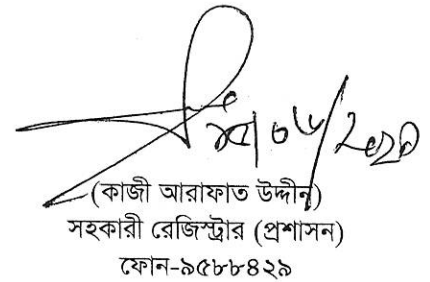 (কাজী আরাফাত উদ্দীন)
সহকারী রেজিস্ট্রার (প্রশাসন)
ফোন-৯৫৮৮৪২৯